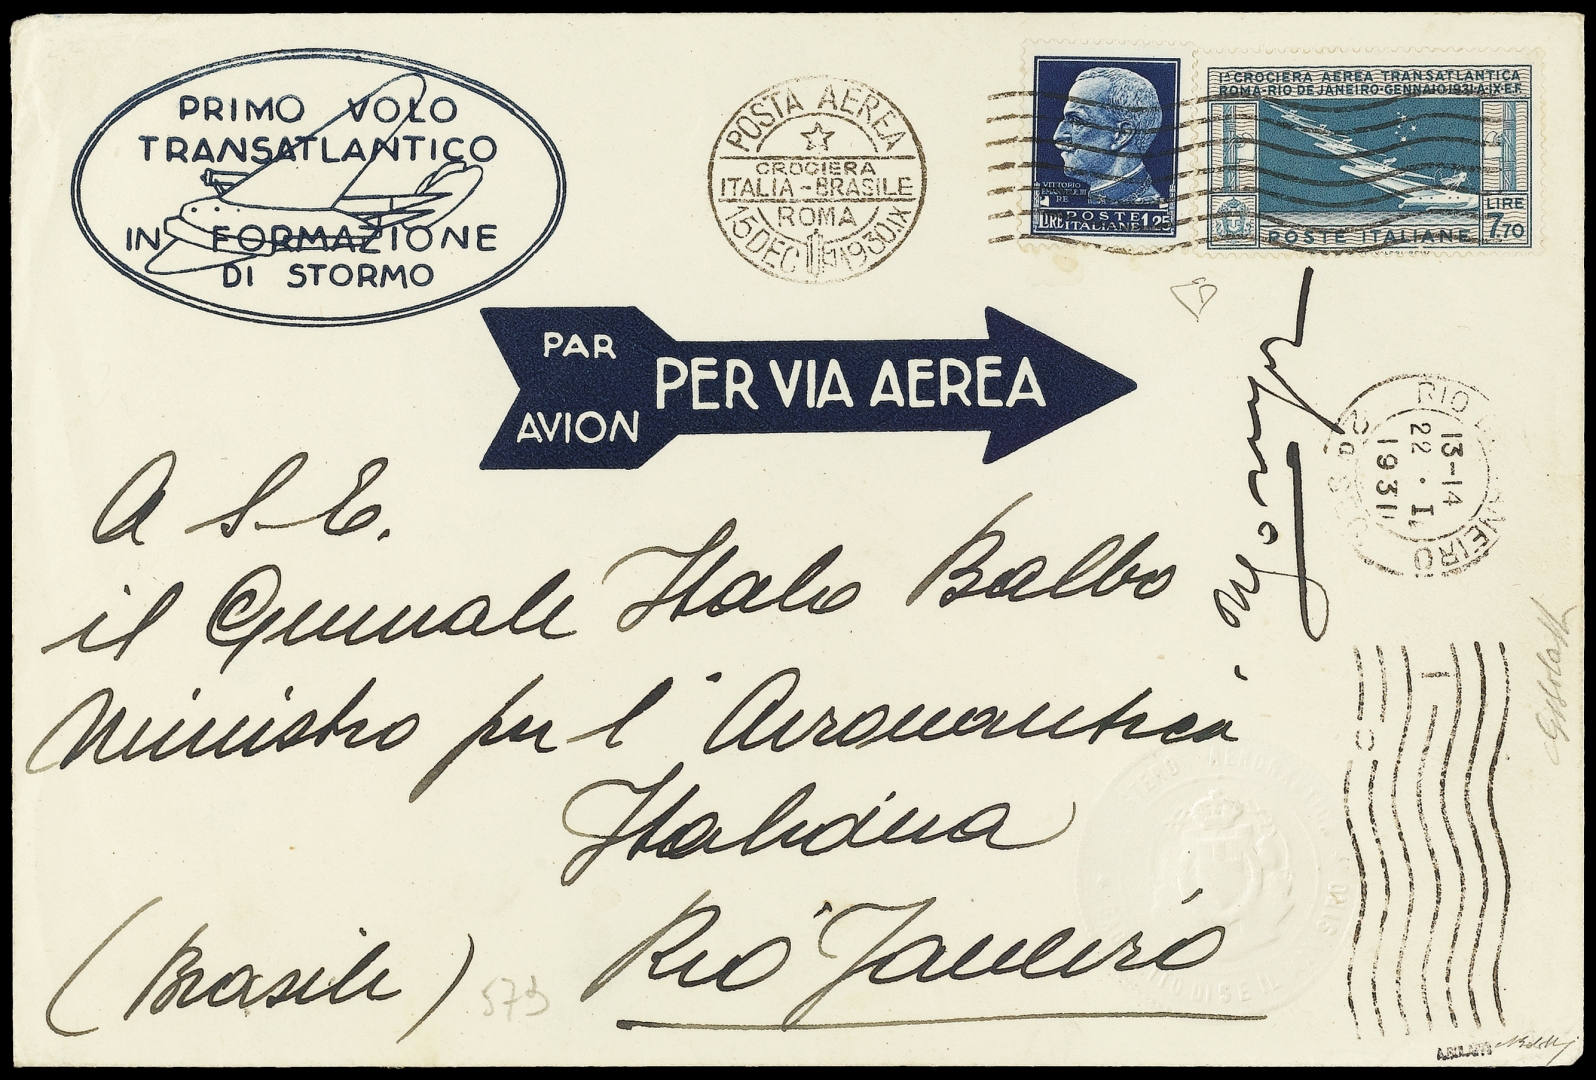 PRIMO VOLO
TRANSATLANTICO
IN FORMAZIONE
DI STORMO
POSTA AEREA
CROCIERA
ITALIA-BRASILE
ROMA
15 DEC 1930.IX
VITTORIO
EMANUELE III
RE
LIRE POSTE 1,25
ITALIANE
Iª CROCIERA AEREA TRANSATLANTICA
ROMA-RIO DE JANEIRO-GENNAIO 1931-A.IX-E.F.
LIRE
7,70
POSTE ITALIANE
PAR
AVION
PER VIA AEREA
RIO JANEIRO
13-14
22 . I
1931
2ª
A S. E.
il Generale Italo Balbo
Ministro per l'Aeronautica
Italiana
Rio Janeiro
(Brasile)
573